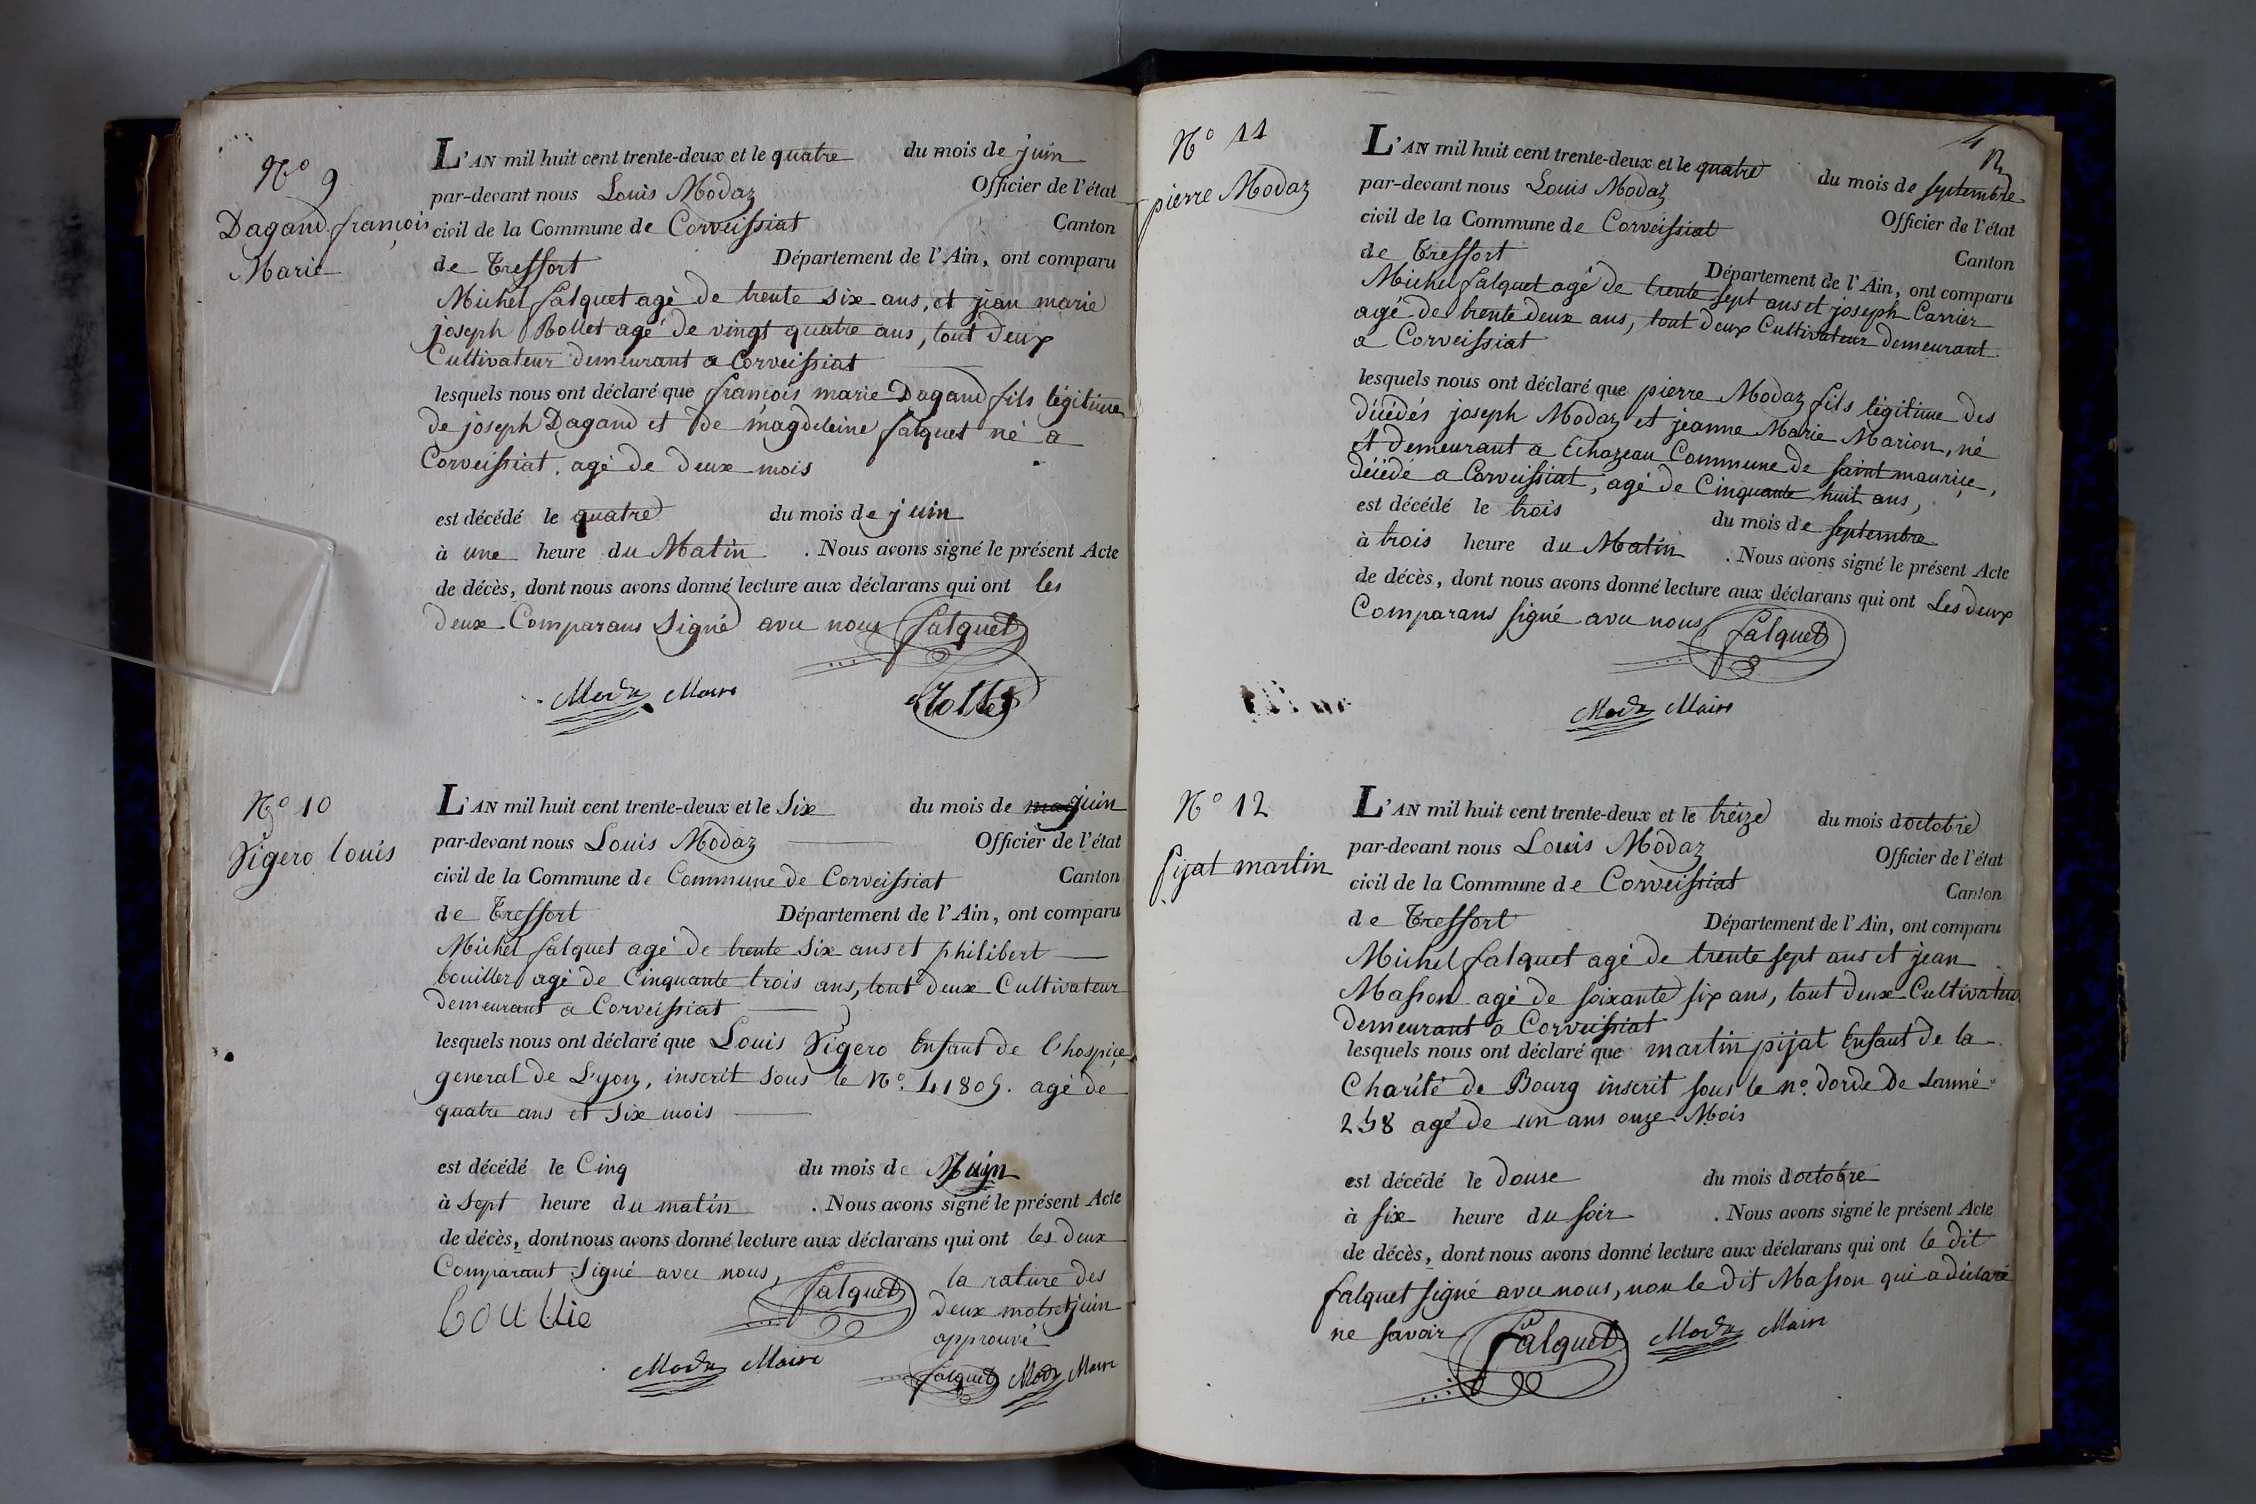 N° 9
Dagand françois
Marie
L'AN mil huit cent trente-deux et le quatre du mois de juin
par-devant nous Louis Modaz Officier de l'état
civil de la Commune de Corveissiat Canton
de Treffort Département de l'Ain, ont comparu
Michel falquet agé de trente six ans, et jean marie
joseph Rollet agé de vingt quatre ans, tout deux
Cultivateur demeurant a Corveissiat
lesquels nous ont déclaré que françois marie Dagand fils légitime
de joseph Dagand et de magdeleine falquet né a
Corveissiat, agé de deux mois
est décédé le quatre du mois de juin
à une heure du Matin . Nous avons signé le présent Acte
de décès, dont nous avons donné lecture aux déclarans qui ont les
deux Comparans Signé avec nous falquet
Modaz Maire Rollet
N° 10
Vigero louis
L'AN mil huit cent trente-deux et le Six du mois de may juin
par-devant nous Louis Modaz Officier de l'état
civil de la Commune de Commune de Corveissiat Canton
de Treffort Département de l'Ain, ont comparu
Michel falquet agé de trente six ans et philibert
bouiller agé de Cinquante trois ans, tout deux Cultivateur
demeurant a Corveissiat
lesquels nous ont déclaré que Louis Vigero Enfant de l'hospice
general de Lyon, inscrit sous le N°. 41805. agé de
quatre ans et six mois
est décédé le Cinq du mois de Juin
à sept heure du matin . Nous avons signé le présent Acte
de décès, dont nous avons donné lecture aux déclarans qui ont les deux
Comparant Signé avec nous, falquet
la rature des
deux mots juin
approuvé
Modaz Maire falquet Modaz Maire
4
N° 11
pierre Modaz
L'AN mil huit cent trente-deux et le quatre du mois de septembre
par-devant nous Louis Modaz Officier de l'état
civil de la Commune de Corveissiat Canton
de Treffort Département de l'Ain, ont comparu
Michel falquet agé de trente sept ans et joseph Carrier
agé de trente deux ans, tout deux Cultivateur demeurant
a Corveissiat
lesquels nous ont déclaré que pierre Modaz fils légitime des
décédés joseph Modaz et jeanne Marie Marion, né
et demeurant a Echazeau Commune de saint maurice,
décédé a Corveissiat, agé de Cinquante huit ans,
est décédé le trois du mois de septembre
à trois heure du Matin . Nous avons signé le présent Acte
de décès, dont nous avons donné lecture aux déclarans qui ont Les deux
Comparans signé avec nous falquet
Modaz Maire
N° 12
pijat martin
L'AN mil huit cent trente-deux et le treize du mois d octobre
par-devant nous Louis Modaz Officier de l'état
civil de la Commune de Corveissiat Canton
de Treffort Département de l'Ain, ont comparu
Michel falquet agé de trente sept ans et jean
Masson agé de soixante six ans, tout deux Cultivateur
demeurant a Corveissiat
lesquels nous ont déclaré que martin pijat Enfant de la
Charité de Bourg inscrit sous le n°. dorde de Lanné
258 agé de un ans onze Mois
est décédé le douse du mois d octobre
à six heure du soir . Nous avons signé le présent Acte
de décès, dont nous avons donné lecture aux déclarans qui ont le dit
falquet signé avec nous, non le dit Masson qui a déclaré
ne savoir falquet Modaz Maire